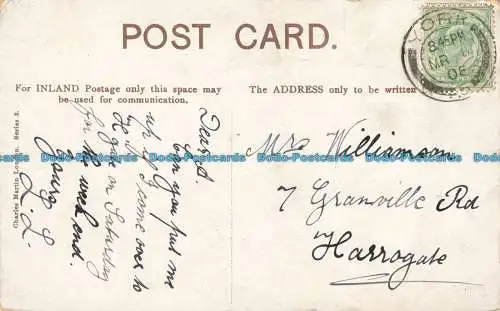 POST CARD.
For INLAND Postage only this space may
be used for communication.
The ADDRESS only to be written
Charles Martin, London. Series 3.
YORK
MR
Dear
Can you put me
up if I come over to
H'gate on Saturday
for the week end.
Yours
L. L.
Mrs Williamson
7 Granville Rd
Harrogate
Dodo-Postcards Dodo-Postcards Dodo-Postcards Dodo-Postcards Dodo-Postcards